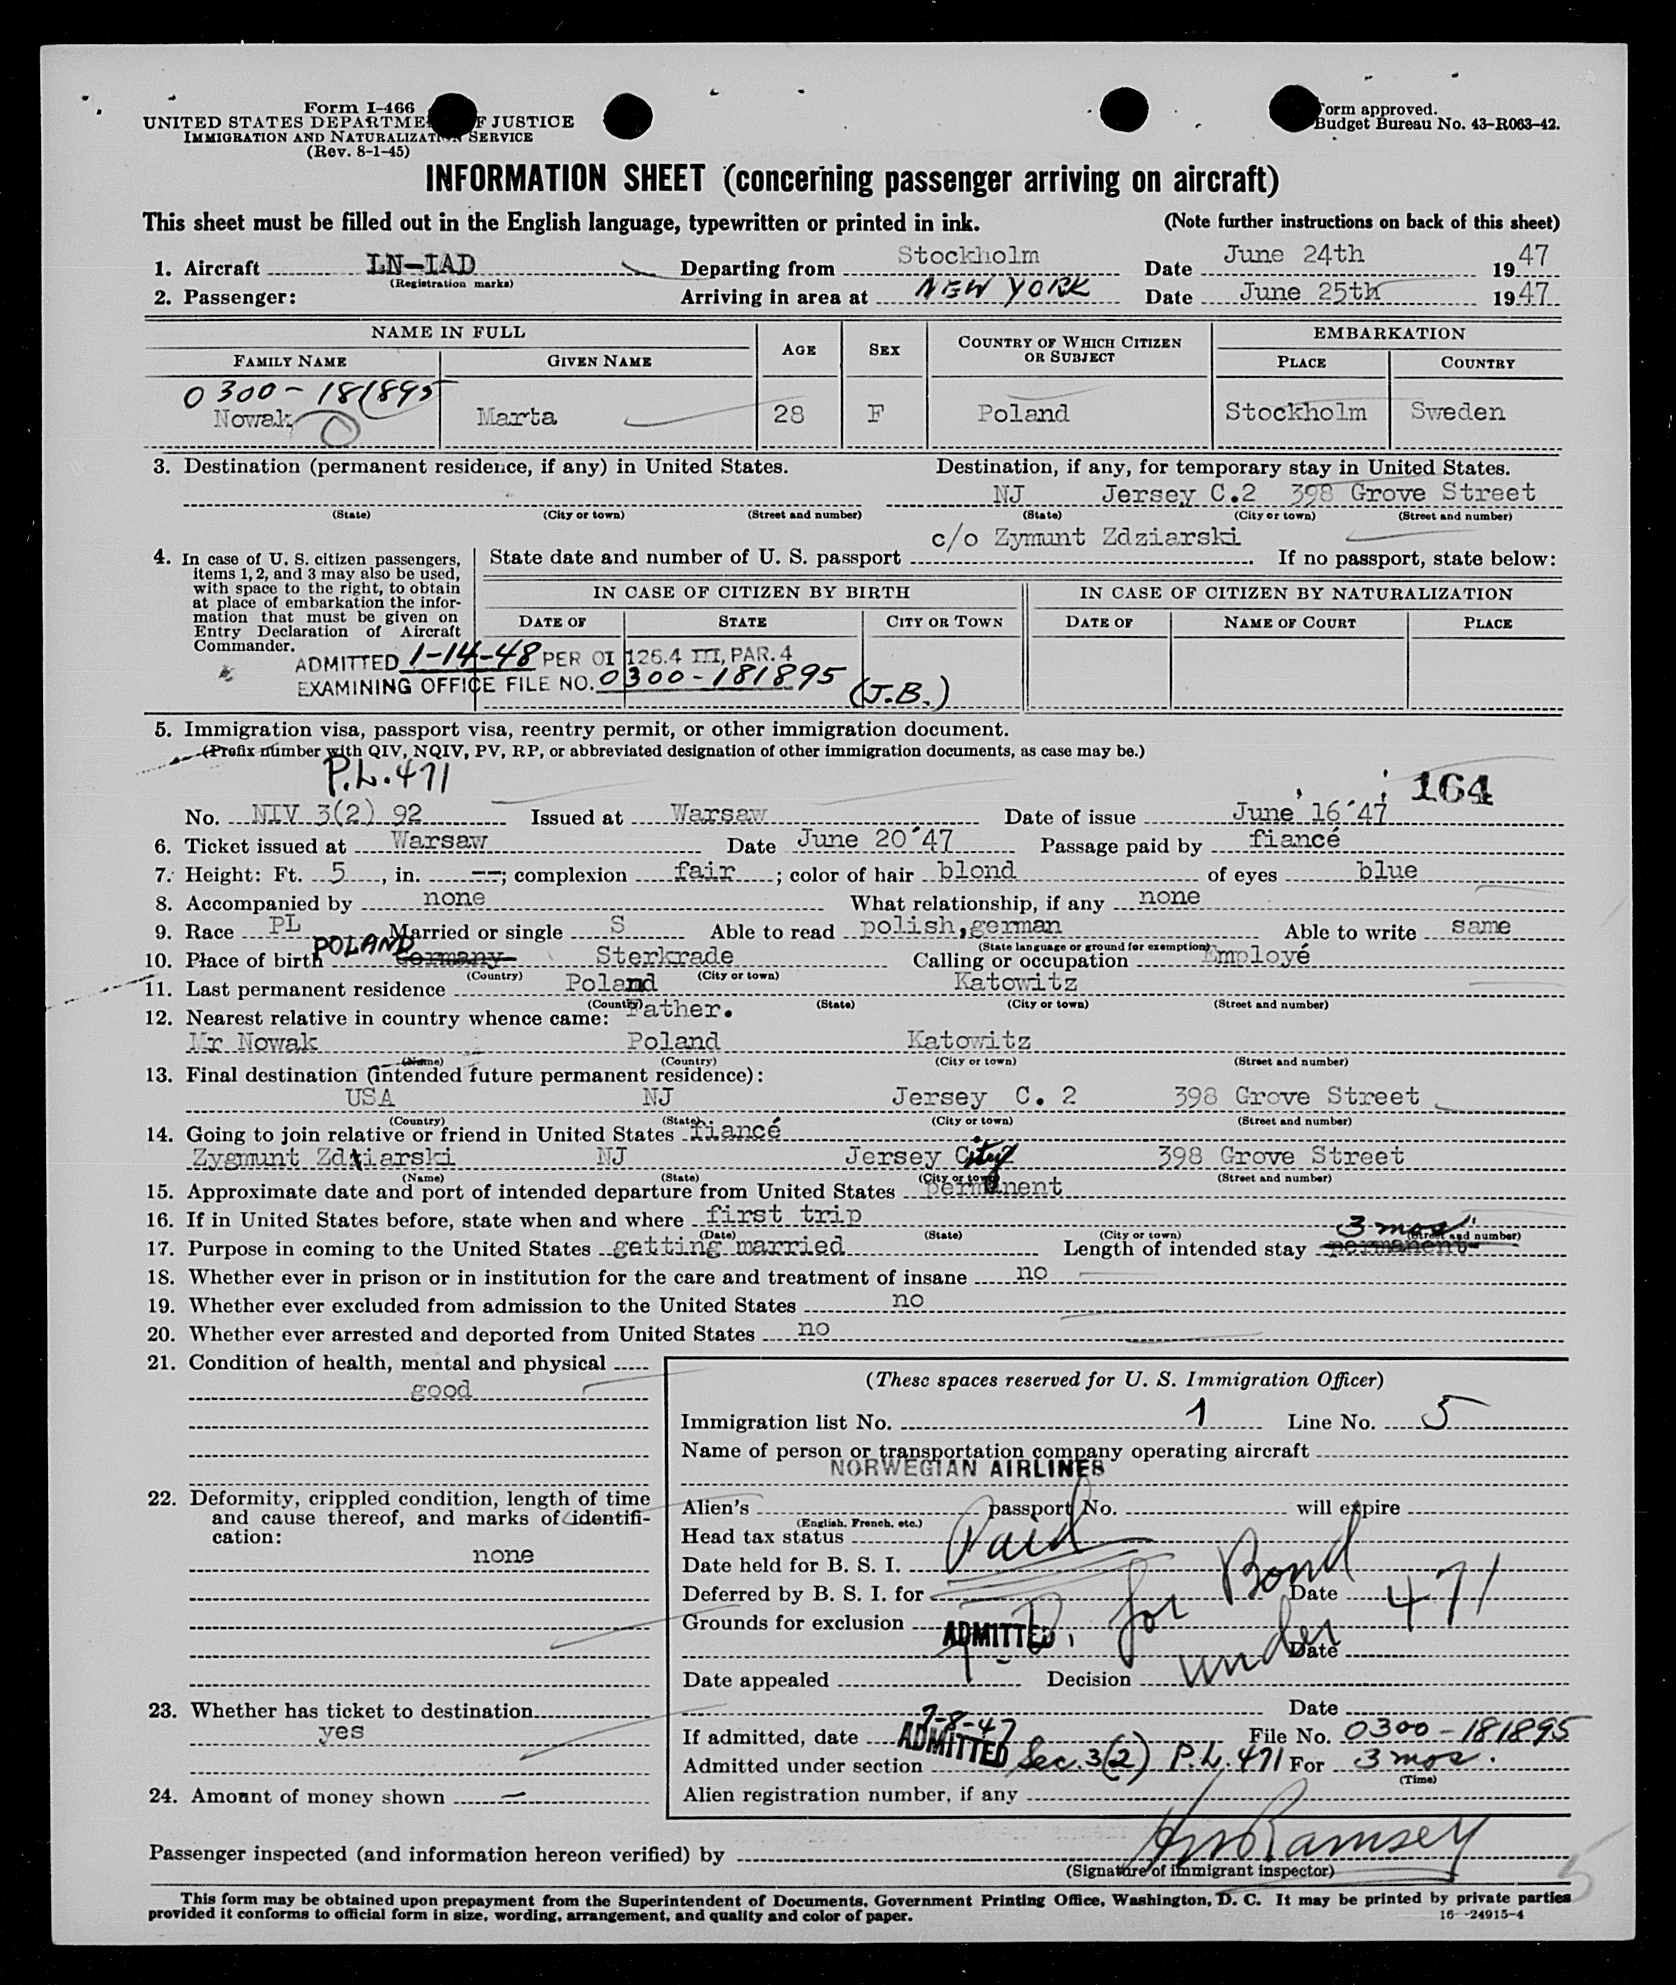 Form I-466
UNITED STATES DEPARTMENT OF JUSTICE
IMMIGRATION AND NATURALIZATION SERVICE
(Rev. 8-1-45)
Form approved.
Budget Bureau No. 43-R063-42.
INFORMATION SHEET (concerning passenger arriving on aircraft)
This sheet must be filled out in the English language, typewritten or printed in ink. (Note further instructions on back of this sheet)
1. Aircraft LN-IAD Departing from Stockholm Date June 24th 1947
(Registration marks)
2. Passenger: Arriving in area at NEW YORK Date June 25th 1947
NAME IN FULL AGE SEX COUNTRY OF WHICH CITIZEN OR SUBJECT EMBARKATION
FAMILY NAME GIVEN NAME PLACE COUNTRY
0300-181895
Nowak Marta 28 F Poland Stockholm Sweden
3. Destination (permanent residence, if any) in United States. Destination, if any, for temporary stay in United States.
NJ Jersey C.2 398 Grove Street
(State) (City or town) (Street and number) (State) (City or town) (Street and number)
c/o Zymunt Zdziarski
4. In case of U. S. citizen passengers, items 1, 2, and 3 may also be used, with space to the right, to obtain at place of embarkation the information that must be given on Entry Declaration of Aircraft Commander.
State date and number of U. S. passport If no passport, state below:
IN CASE OF CITIZEN BY BIRTH IN CASE OF CITIZEN BY NATURALIZATION
DATE OF STATE CITY OR TOWN DATE OF NAME OF COURT PLACE
ADMITTED 1-14-48 PER OI 126.4 III, PAR. 4
EXAMINING OFFICE FILE NO. 0300-181895 (J.B.)
5. Immigration visa, passport visa, reentry permit, or other immigration document.
(Prefix number with QIV, NQIV, PV, RP, or abbreviated designation of other immigration documents, as case may be.)
P.L.471
164
No. NIV 3(2) 92 Issued at Warsaw Date of issue June 16´47
6. Ticket issued at Warsaw Date June 20´47 Passage paid by fiancé
7. Height: Ft. 5, in. --; complexion fair; color of hair blond of eyes blue
8. Accompanied by none What relationship, if any none
9. Race PL Married or single S Able to read polish,german Able to write same
(State language or ground for exemption)
10. Place of birth POLAND Germany Sterkrade Calling or occupation Employé
(Country) (City or town)
11. Last permanent residence Poland Katowitz
(Country) (State) (City or town) (Street and number)
12. Nearest relative in country whence came: Father.
Mr Nowak Poland Katowitz
(Name) (Country) (City or town) (Street and number)
13. Final destination (intended future permanent residence):
USA NJ Jersey C. 2 398 Grove Street
(Country) (State) (City or town) (Street and number)
14. Going to join relative or friend in United States fiancé
Zygmunt Zdziarski NJ Jersey City 398 Grove Street
(Name) (State) (City or town) (Street and number)
15. Approximate date and port of intended departure from United States permanent
16. If in United States before, state when and where first trip
(Date) (State) (City or town) (Street and number)
3 mos.
17. Purpose in coming to the United States getting married Length of intended stay permanent
18. Whether ever in prison or in institution for the care and treatment of insane no
19. Whether ever excluded from admission to the United States no
20. Whether ever arrested and deported from United States no
21. Condition of health, mental and physical
good
22. Deformity, crippled condition, length of time and cause thereof, and marks of identification:
none
23. Whether has ticket to destination
yes
24. Amount of money shown —
(These spaces reserved for U. S. Immigration Officer)
Immigration list No. 1 Line No. 5
Name of person or transportation company operating aircraft
NORWEGIAN AIRLINES
Alien's passport No. will expire
(English, French, etc.)
Head tax status Paid
Date held for B. S. I.
Deferred by B. S. I. for Date
Grounds for exclusion
ADMITTED
T.D. for Bond under 471
Date
Date appealed Decision
Date
7-8-47
If admitted, date ADMITTED File No. 0300-181895
Admitted under section Sec. 3(2) P.L. 471 For 3 mos.
(Time)
Alien registration number, if any
Passenger inspected (and information hereon verified) by Ramsey
(Signature of immigrant inspector)
5
This form may be obtained upon prepayment from the Superintendent of Documents, Government Printing Office, Washington, D. C. It may be printed by private parties
provided it conforms to official form in size, wording, arrangement, and quality and color of paper.
16—24915-4